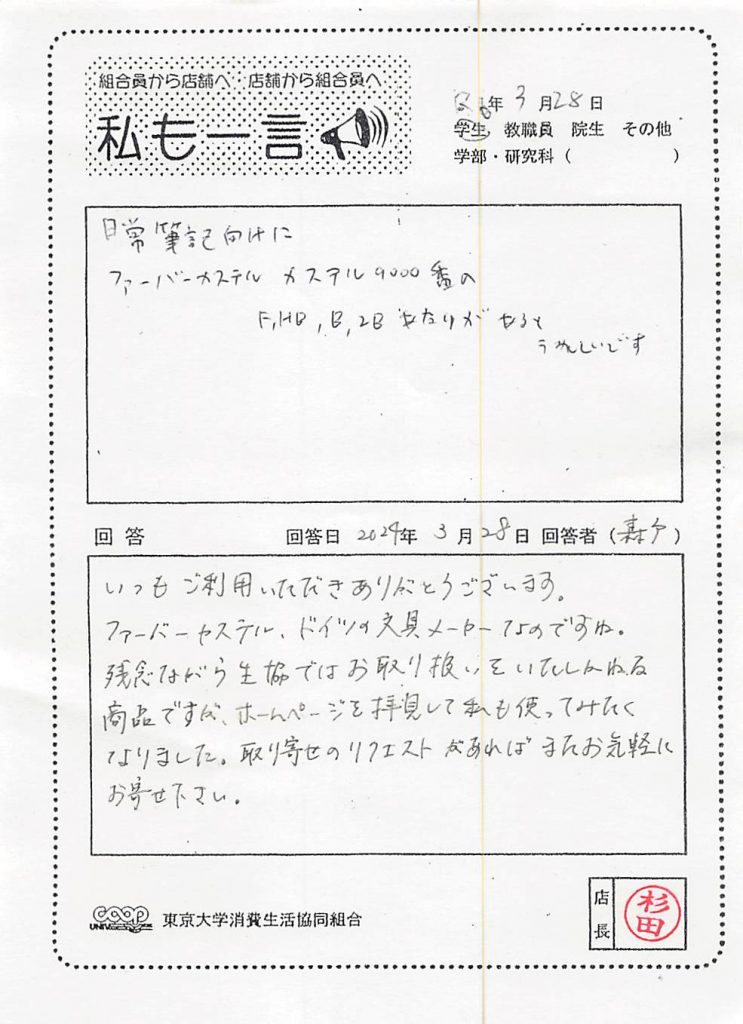 組合員から店舗へ 店舗から組合員へ
私も一言
年 3月28日
学生 教職員 院生 その他
学部・研究科( )
日常筆記向けに
ファーバーカステル カステル9000番の
F,HB,B,2Bあたりがあると
うれしいです
回答 回答日 2024年 3月28日 回答者( )
いつもご利用いただきありがとうございます。
ファーバーカステル、ドイツの文具メーカーなのですね。
残念ながら生協ではお取り扱いをいたしかねる
商品ですが、ホームページを拝見して私も使ってみたく
なりました。取り寄せのリクエストがあればまたお気軽に
お寄せ下さい。
COOP
UNIV
東京大学消費生活協同組合
店長
杉田